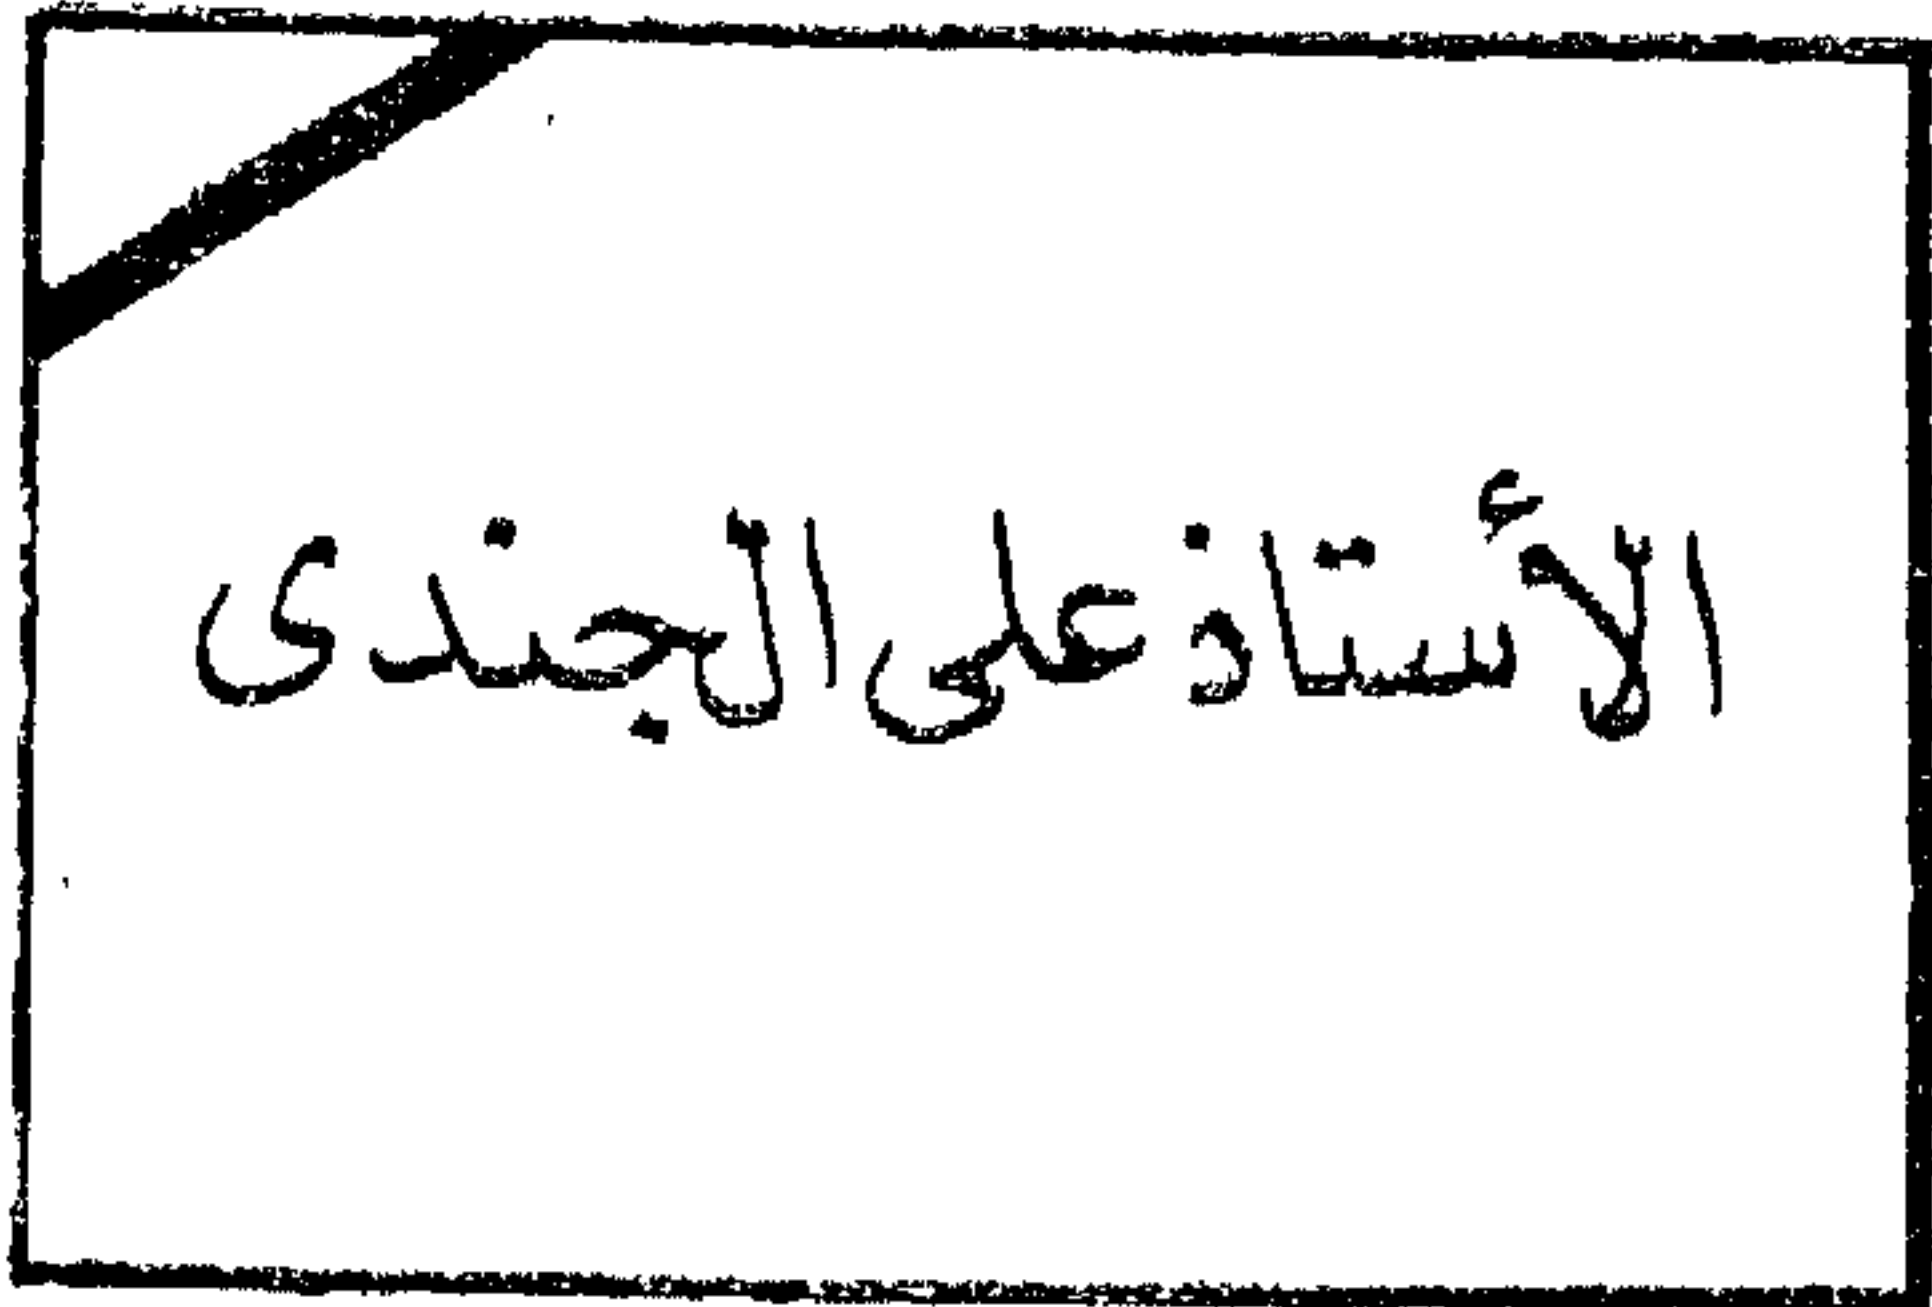 الأستاذ على الجندى